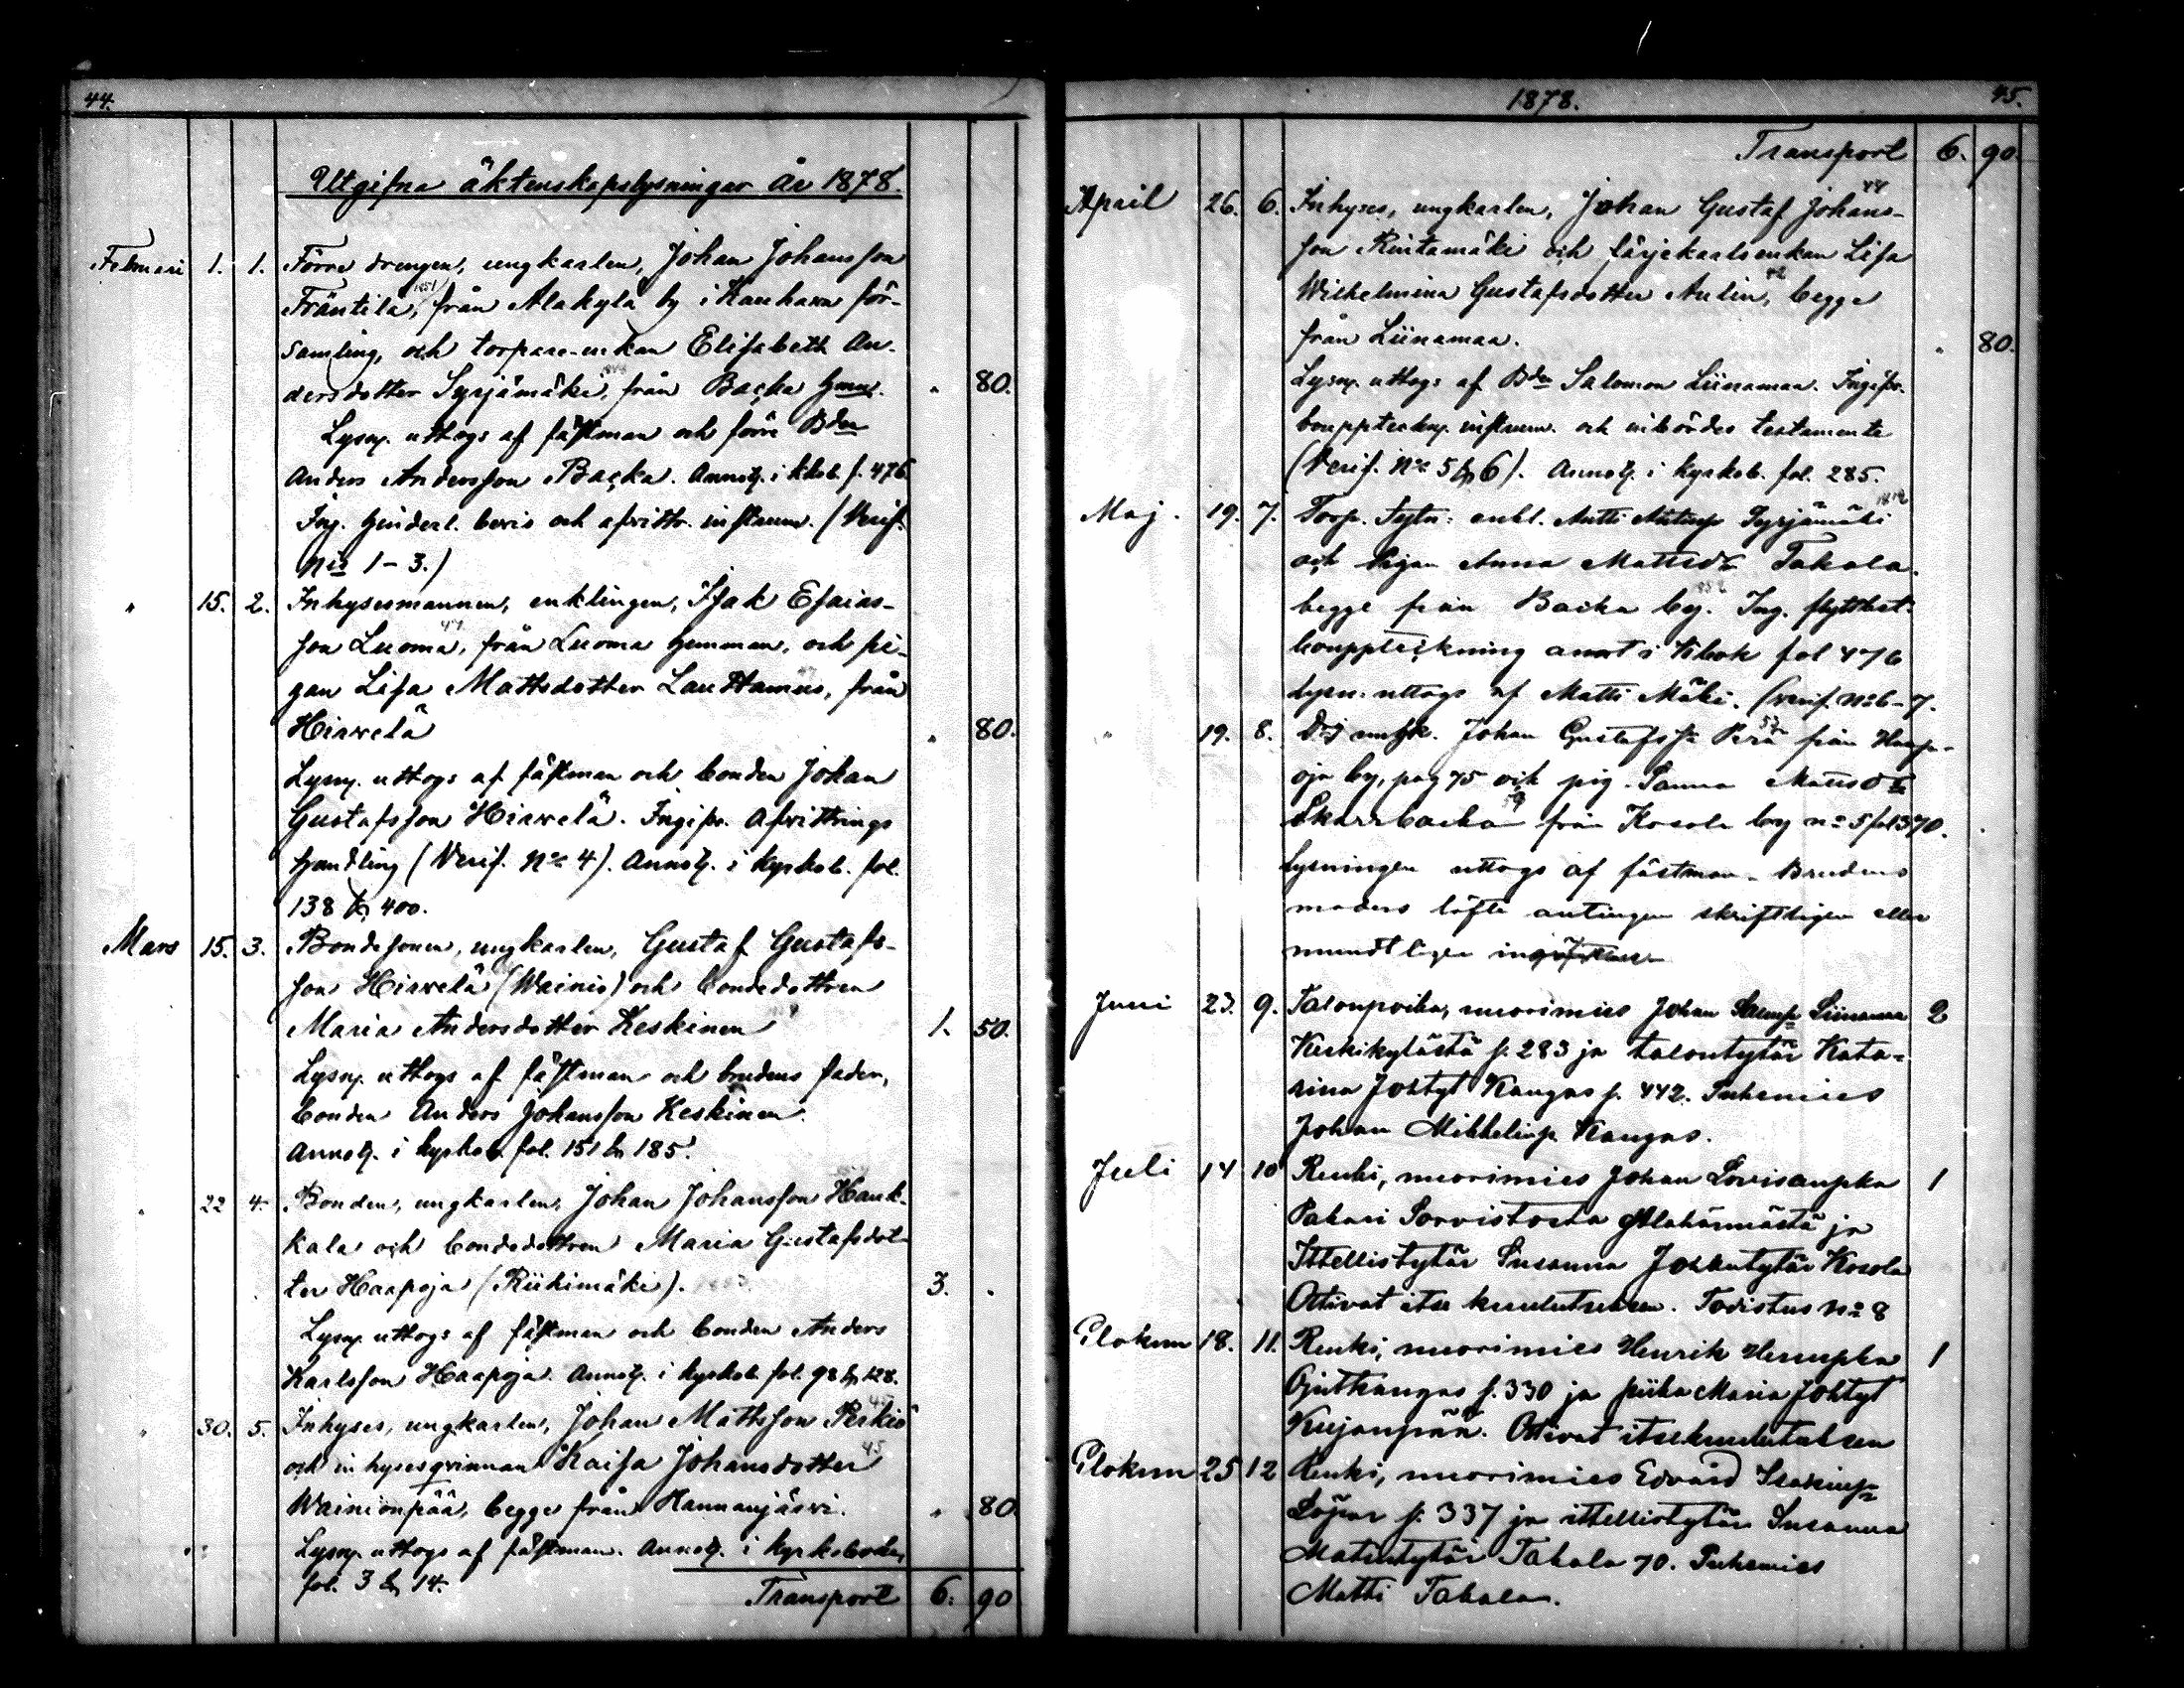 44.
Utgifna äktenskapslysningar År 1878.
Februari 1. 1. Förre drengen, ungkarlen, Johan Johansson
Fräntilä, från Alakylä by i Kauhava för-
samling, och torpare-enkan Elisabeth An-
dersdotter Syrjämäki, från Backa hmn. " 80.
Lysn. uttogs af fästman och förre Bden
Anders Andersson Backa. Annot. i kkob. f. 476
Ing. hinderl. bevis och afvittr. instrum. (Verif.
No 1-3.)
" 15. 2. Inhysesmannen, enklingen, Isak Esaias-
son Luoma, från Luoma hemman, och pi-
gan Lisa Mattsdotter Lauttamus, från
Hirvelä " 80.
Lysn. uttogs af fästman och bonden Johan
Gustafsson Hirvelä. Ingifv. Afvittrings
handling (Verif. No 4). Annot. i kyrkob. fol.
138 & 400.
Mars 15. 3. Bondesonen, ungkarlen, Gustaf Gustafs-
son Hirvelä (Wainio) och bondedottren
Maria Andersdotter Keskinen 1. 50.
Lysn. uttogs af fästman och brudens fader,
bonden Anders Johansson Keskinen.
Annot. i kyrkob. fol. 151 & 185.
" 22 4. Bonden, ungkarlen, Johan Johansson Hauk-
kala och bondedottren Maria Gustafsdot-
ter Haapoja (Riihimäki). 3. .
Lysn. uttogs af fästman och bonden Anders
Karlsson Haapoja. Annot. i kyrkob. fol. 98 & 128.
" 30. 5. Inhyses, ungkarlen, Johan Mattsson Perkiö 45
och inhysesqvinnan Kaisa Johansdotter 45
Wainionpää, begge från Hannanjärvi. " 80
Lysn. uttogs af fästman. Annot. i kyrkoboken,
fol. 3 & 14.
Transport 6. 90
1878. 45.
Transport 6. 90.
April 26. 6. Inhyses, ungkarlen, Johan Gustaf Johans-
son Rintamäki och färjekarlsenkan Lisa
Wilhelmina Gustafsdotter Aulin, begge
från Liinamaa. " 80.
Lysn. uttogs af Bden Salomon Liinamaa. Ingifv.
bouppteckn. instrum. och inbördes testamente
(Verif. No 5 & 6). Annot. i kyrkob. fol. 285.
Maj. 19. 7. Torp. enkl. Antti Syrjämäki
och Pigan Anna Mattsdr Takala.
begge från Backa by. Ing. flyttbet.
bouppteckning i Kbok fol 476
Lysn. uttogs af Matti Mäki. (verif. No 6-7.
" 19. 8. Drg ungk. Johan Gustafss. Perä från Haap-
oja by, pag 75 och pig. Sanna Mattsdr
Skarrbacka från Kosola by no 5 fol 370.
Lysningen uttogs af fästman. Brudens
moders löfte antingen skriftligen eller
mundtligen
Juni 23. 9. Talonpoika, nuorimies Johan Liinamaa 2
Keskikylästä s. 283 ja talontytär Kata-
rina Johtyt Kangas s. 442. Puhemies
Johan Mikkelinp. Kangas.
Juli 14 10 Renki, nuorimies Johan Lovisanpka 1
Pakari Alahärmästä ja
Ittellistytär Susanna Johkntytär Kosola
Ottivat itse kuulutuksen. Todistus no 8
Elokuu 18. 11. Renki, nuorimies Henrik Henrinpka 1
Ojutkangas s. 330 ja piika Maria Johtyt
Kujanpää. Ottivat itse kuulutuksen
Elokuu 25 12 Renki, nuorimies Edvard
s. 337 ja ittellistytär Susanna
Matintytär Takala 70. Puhemies
Matti Takala.